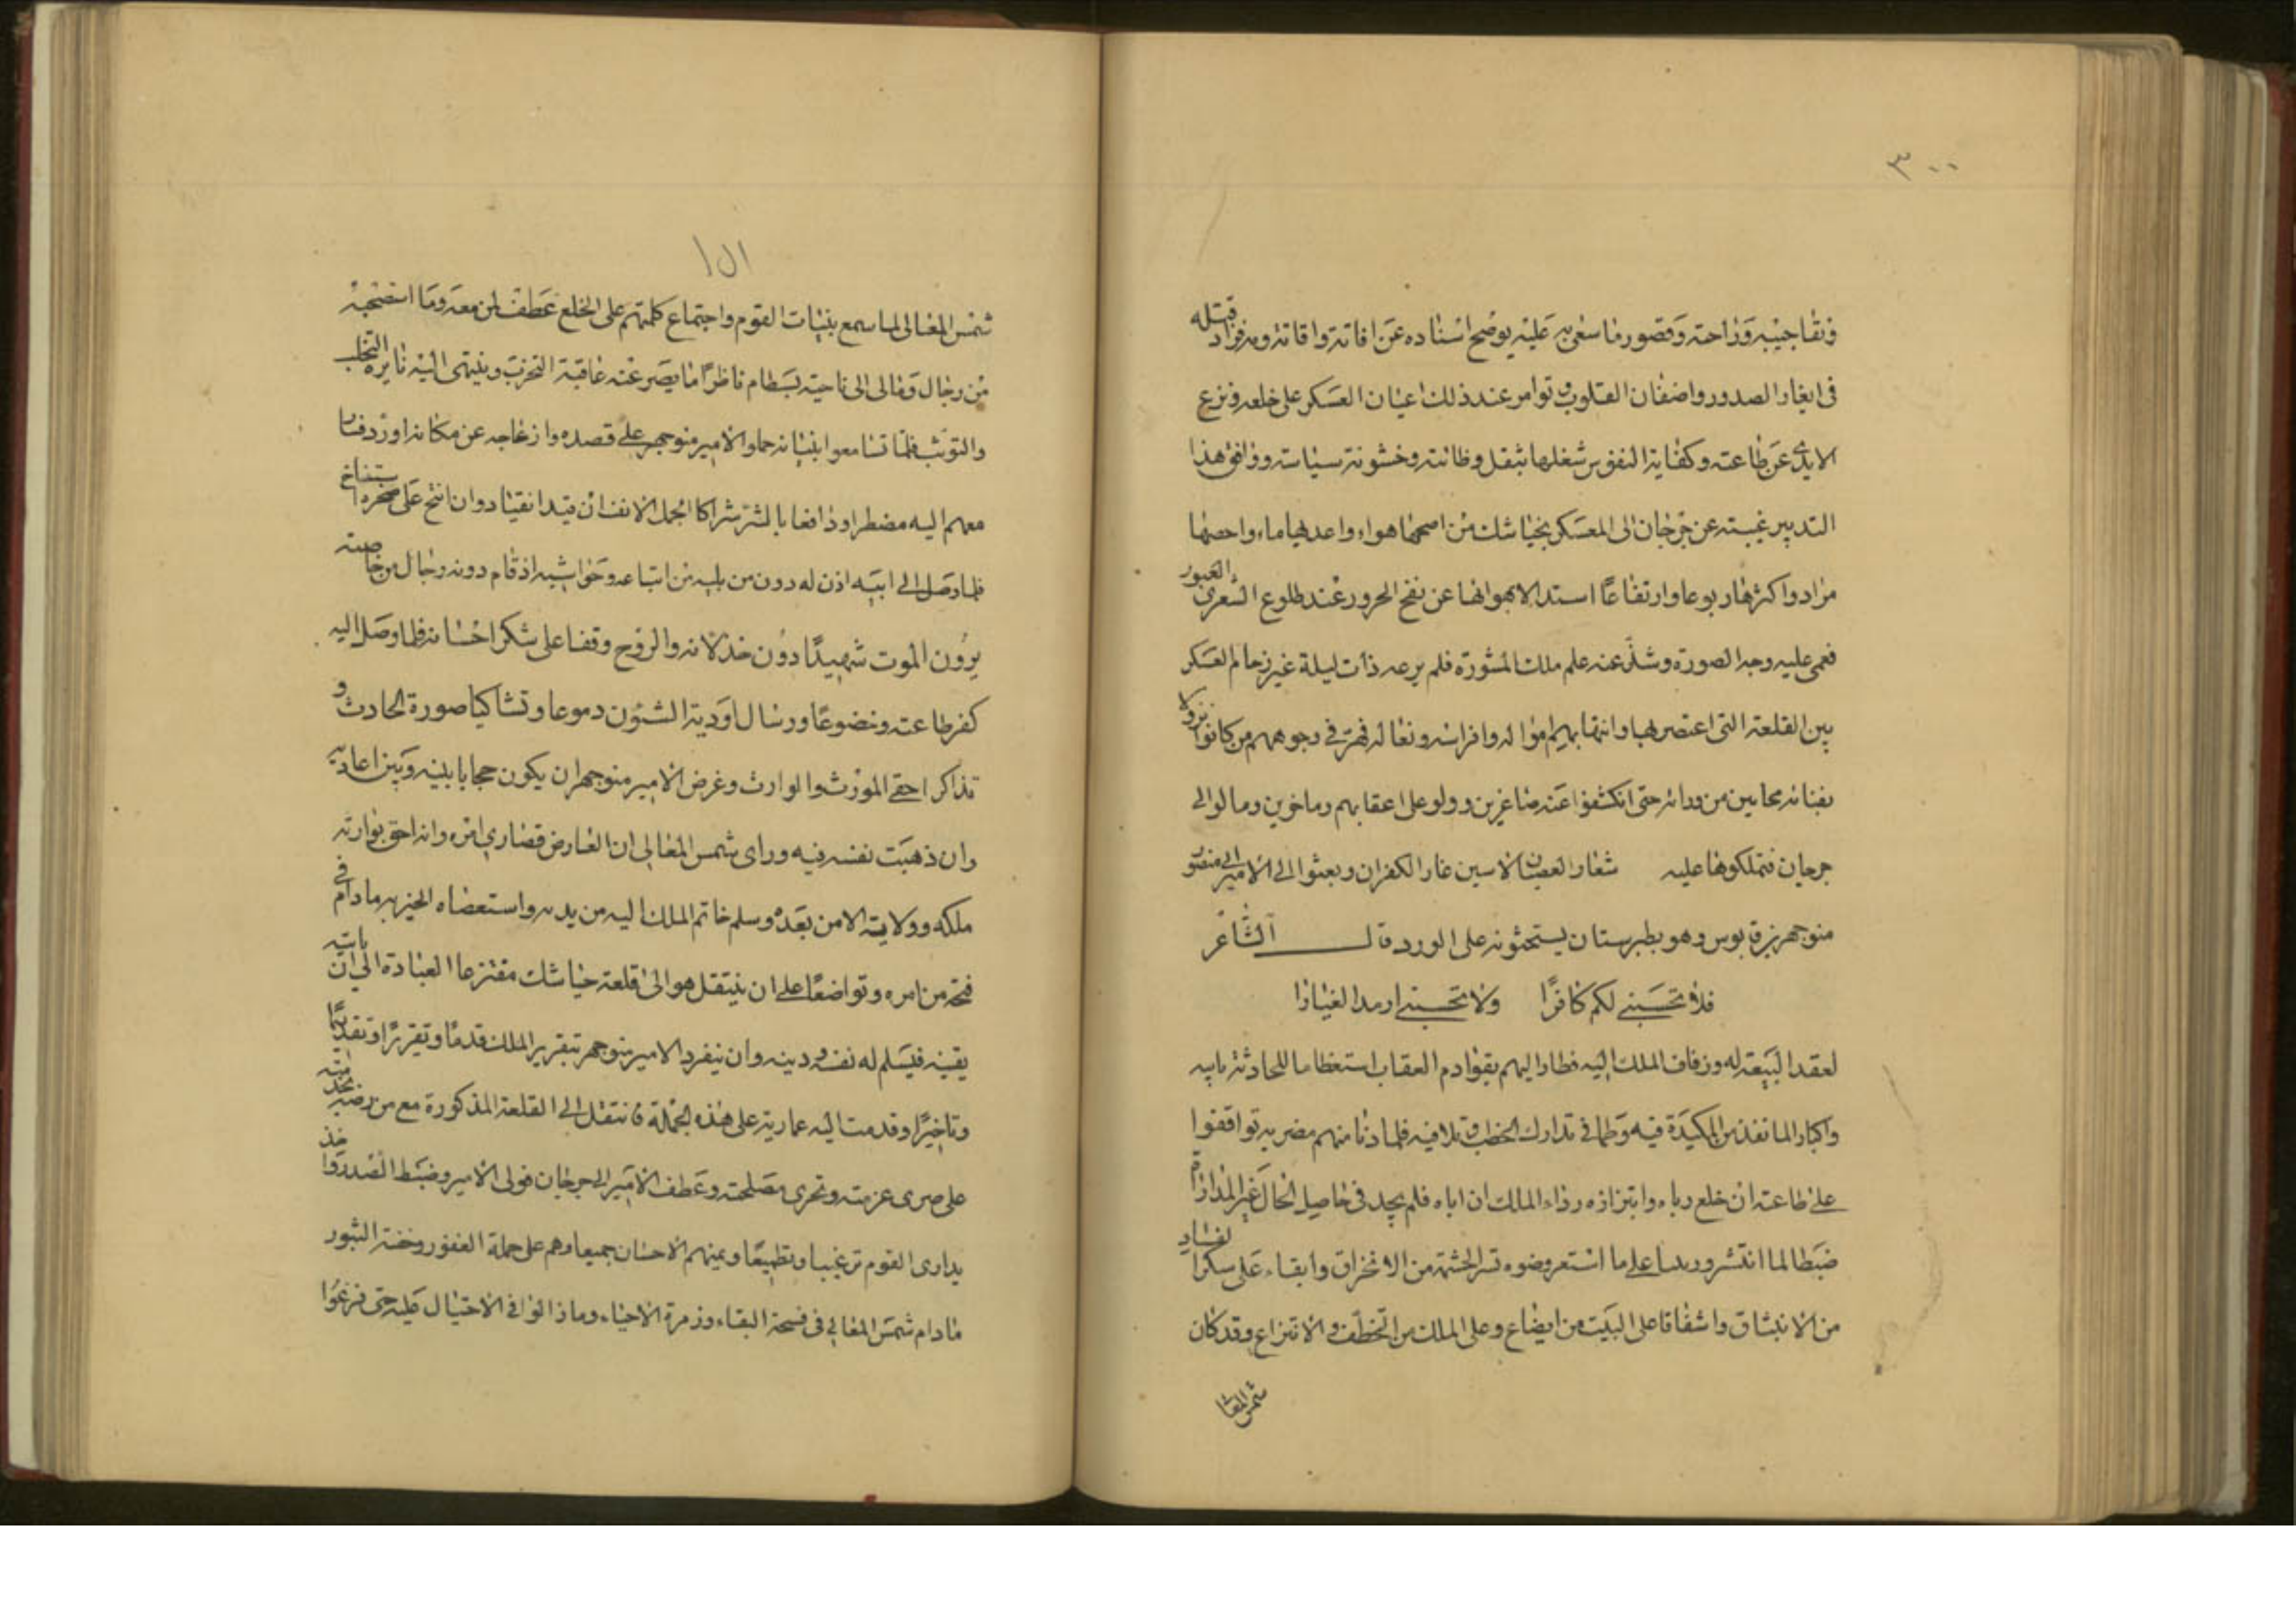 ٣٠٠
ونقاء جيبه وراحته وقصور ما سعى به عليه يوضح استاده عن افاته واقاته وبه فزاد قتله
فى ايغار الصدور واضغان القلوب وتوامر عند ذلك اعيان العسكر على خلعه ونزع
الايدى عن طاعته وكفاية النفوس شغلها بثقل وطائته وخشونة سياسته ووافق هذا
التدبير غيبته عن جرجان الى المعسكر بخياشك من اصحها هواء واعدبها ماء واحصها
مرادوا كثرها ربوعا وارتفاعا استدالا بهوائها عن نفخ الحرور عند طلوع الشعرى العبور
فعمى عليه وجه الصورة وشذ عنه علم ملك المشورة فلم يرعه ذات ليلة غير زحام العسكر
بين القلعة التى اعتصر بها وانتهابهم امواله وافراسه وبغاله فهر فى وجوههم من كانوا نزولا
بفنائه محابين من ورائه حتى انكشفوا عنه صاغرين وولو على اعقابهم وماخوين ومالوا الى
جرجان فتملكوها عليه شعار العصيان لاسين عار الكفران وبعثوا الى الامير ابى منصور
منوجهر بن قابوس وهو بطبرستان يستحثونه على الورد قال الشاعر
فلا تحسبنى لكم كافرا ولا تحسبنى اريد الغيارا
لعقد البيعة له وزفاف الملك اليه فطار اليهم بقوادم العقاب استعظاما للحادثة بابيه
واكبارا لما نفذ من المكيدة فيه وطمعا فى تدارك الخطب وتلافيه فلما دنا منهم مضربه توافقوا
على طاعته ان خلع رباه وابتزازه رداء الملك ان اباه فلم يجد فى حاصل الحال غير المداراة
ضبطا لما انتشر وربسا على ما استعروضوه تسرا لحشمته من الانخراق وابقاء على سكرا لفساد
من الانبثاق واشفاقا على البيت من ايضاع وعلى الملك من التخطف والانتزاع وقد كان
شمس المعالى
١٥١
شمس المعالى لما سمع بنيات القوم واجتماع كلمتهم على الخلع عطف لمن معه وما استصحبه
من رجال ومالى الى ناحية بسطام ناظرا ما يصير عنه عاقبة التحزب وينتهى اليه نايرة التجلب
والتوثب فلما تسامعوا بنيانه حملو الامير منوجهر على قصده وازعاجه عن مكانه اوزد فسار
معهم اليه مضطرا ودافعا بالشر شرا كالجمل الانف ان قيد انقياد وان انيخ على صخرة استناخ
فلما وصل الى ابيه اذن له دون من يليه من اتباعه وحواشيه اذ قام دونه رجال من خاصته
يرون الموت شهيدا دون خذلانه والروح وقفا على شكر احسانه فلما وصل اليه
كفر طاعته وخضوعا ورسال اودية الشؤون دموعا وتشاكيا صورة الحادث و
تذاكرا حقى المورث والوارث وعرض الامير منوجهر ان يكون حجابا بينه وبين اعاديه
وان ذهبت نفسه فيه وراى شمس المعالى ان العارض قصارى امره وانه احق بوارثه
ملكه وولاية الامر من بعده وسلم خاتم الملك اليه من يديه واستعضاه الخير به مادام فى
فتحة من امره وتواضعا على ان ينتقل هو الى قلعة خياشك مقتزعا العبادة الى ان ياتيه
يقينه فيسلم له نفسه ودينه وان ينفرد الامير منوجهر بتقرير الملك قدما وتقريرا وتقديما
وتاخيرا وقدمت اليه عمارية على هذه الجملة فانتقل الى القلعة المذكورة مع من رضيه بخدمته
على صرى عزمته وتحرى مصلحته وعطف الامير الى جرجان فولى الامير وضبط الصدر واخذ
يدارى القوم ترغيبا وتطميعا ويمنيهم الاحسان جميعا وهم على جملة العفور وخشة الثبور
مادام شمس المعالى فى فسحة البقاء وزمرة الاحياء ومازالوا فى الاحتيال عليه حتى فرغوا